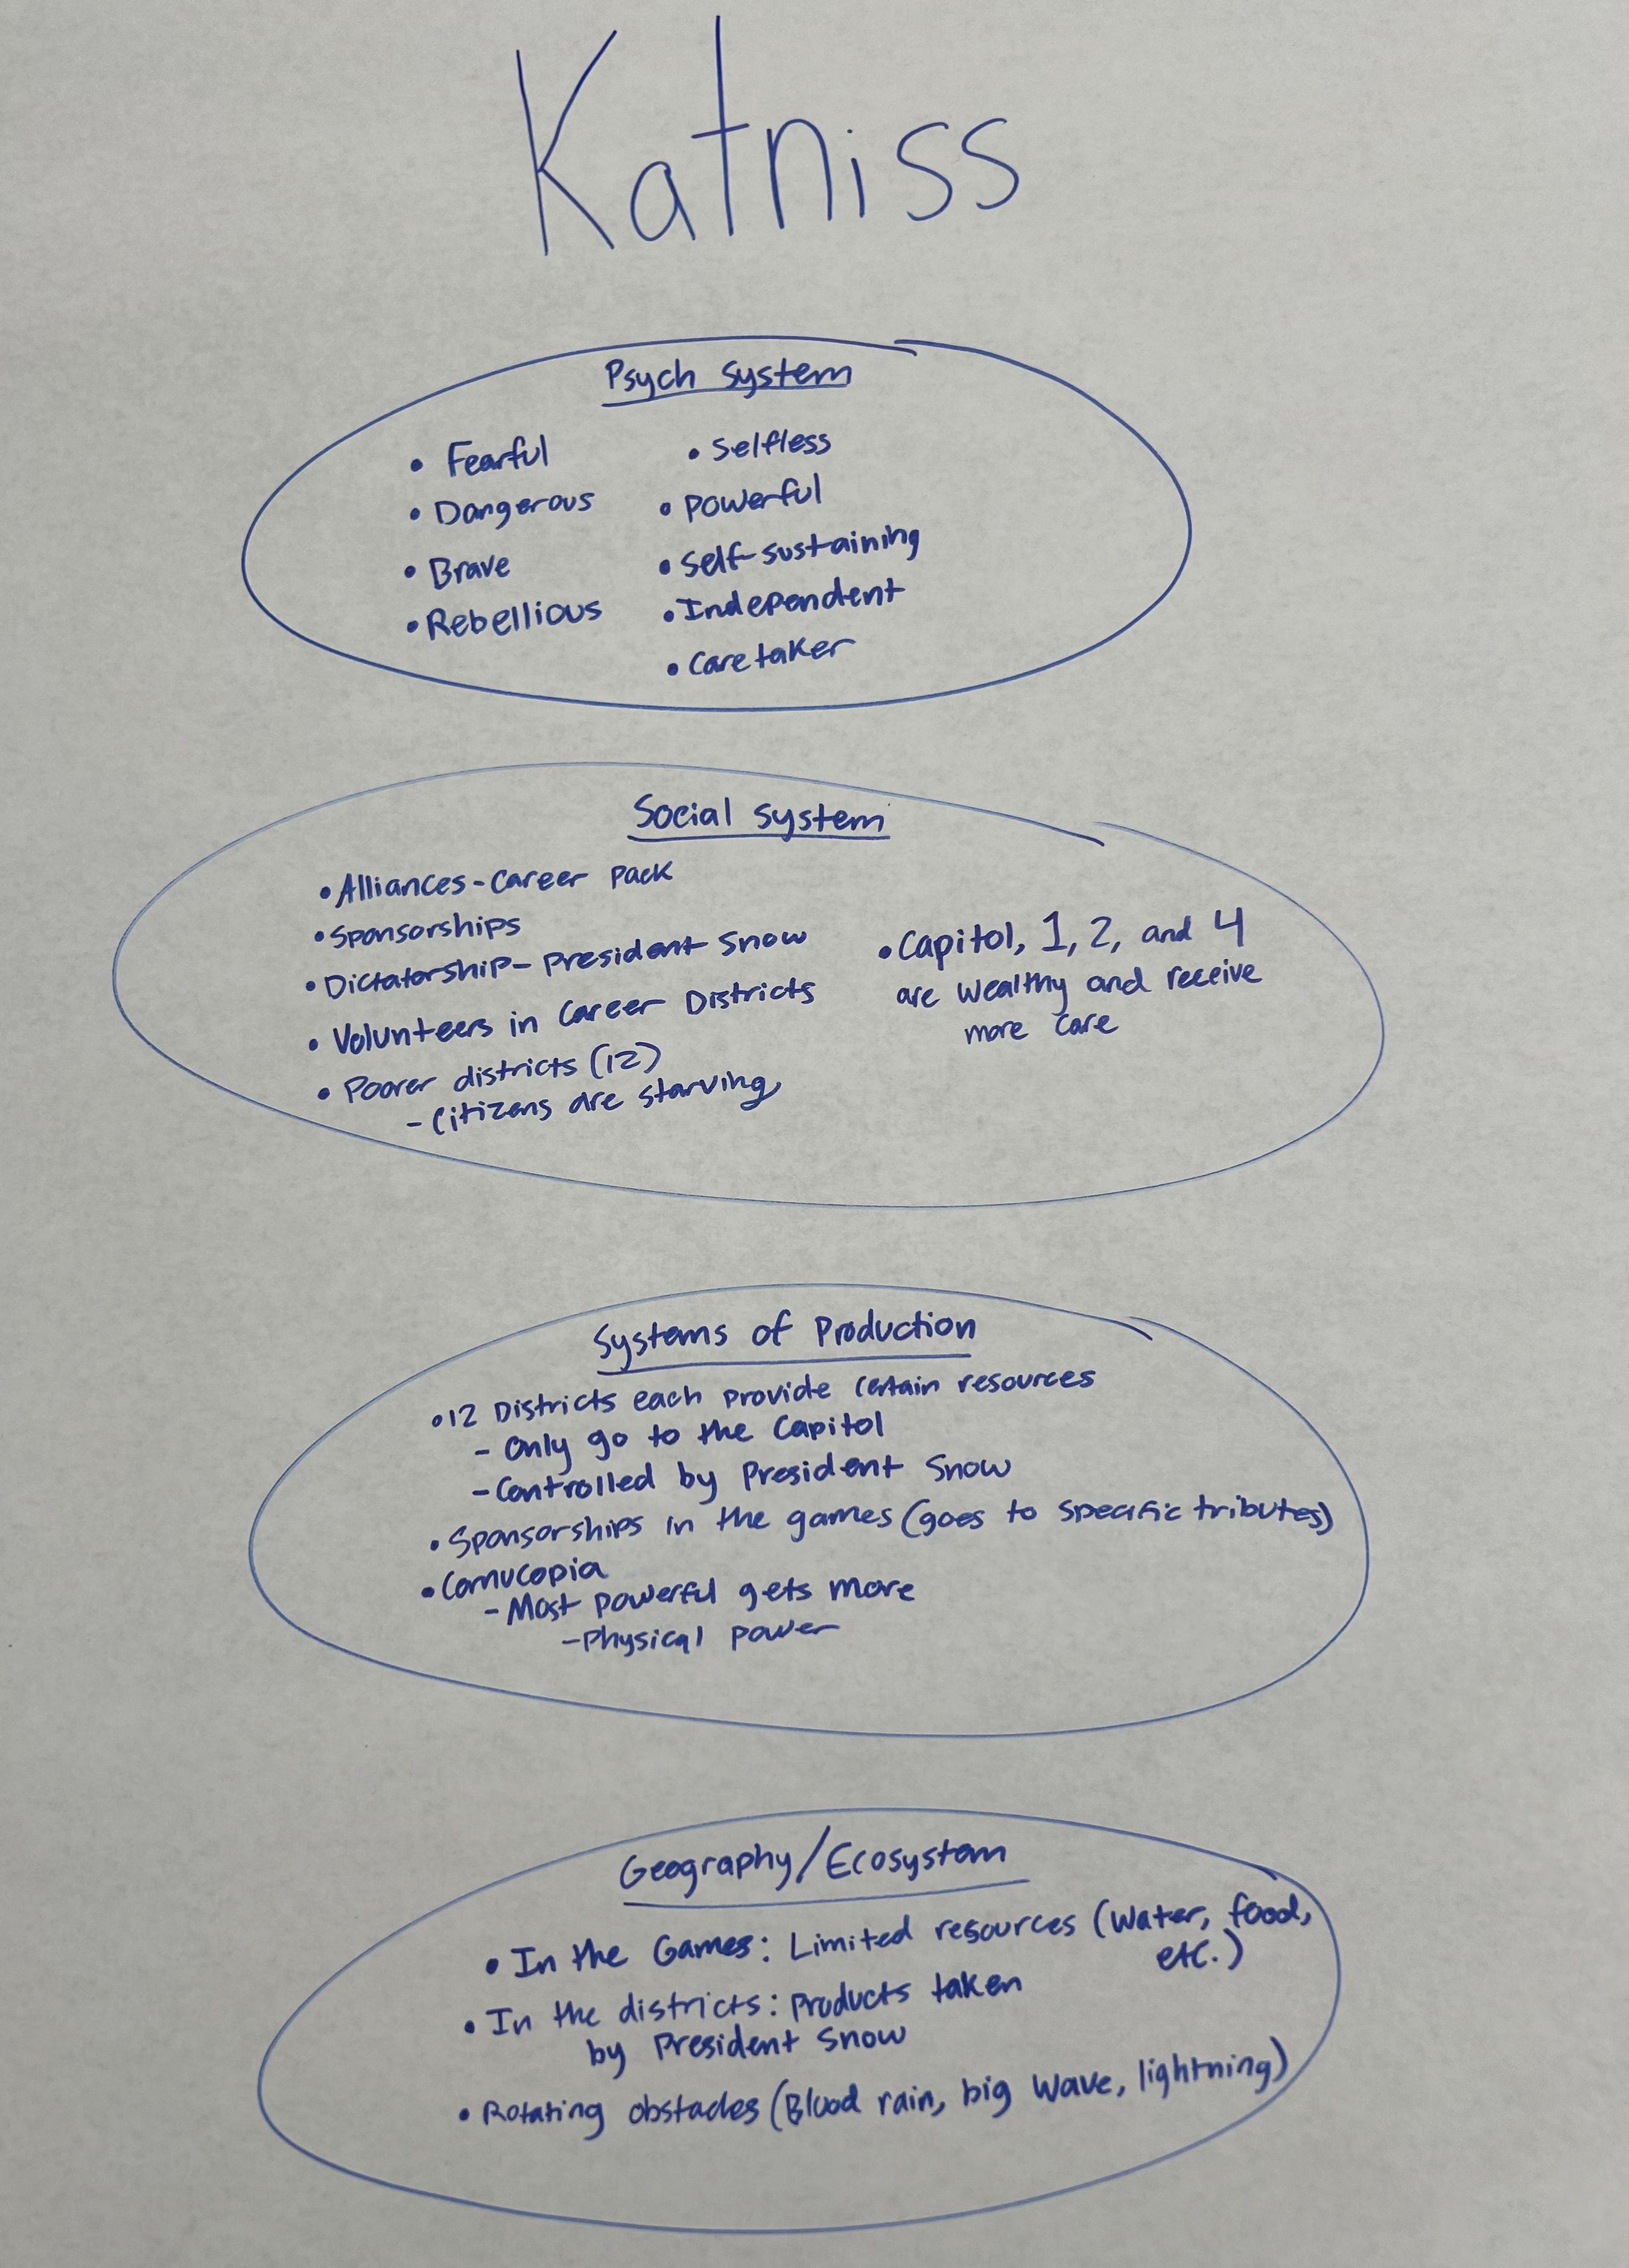 Katniss
Psych System
• Fearful
• Dangerous
• Brave
• Rebellious
• Selfless
• Powerful
• Self-sustaining
• Independent
• Caretaker
Social System
• Alliances - Career Pack
• Sponsorships
• Dictatorship - President Snow
• Volunteers in Career Districts
• Poorer districts (12)
- Citizens are starving
• Capitol, 1, 2, and 4
are wealthy and receive
more care
Systems of Production
• 12 Districts each provide certain resources
- Only go to the Capitol
- Controlled by President Snow
• Sponsorships in the games (goes to specific tributes)
• Cornucopia
- Most powerful gets more
- Physical power
Geography/Ecosystem
• In the Games: Limited resources (Water, food,
etc.)
• In the districts: products taken
by President Snow
• Rotating obstacles (Blood rain, big wave, lightning)